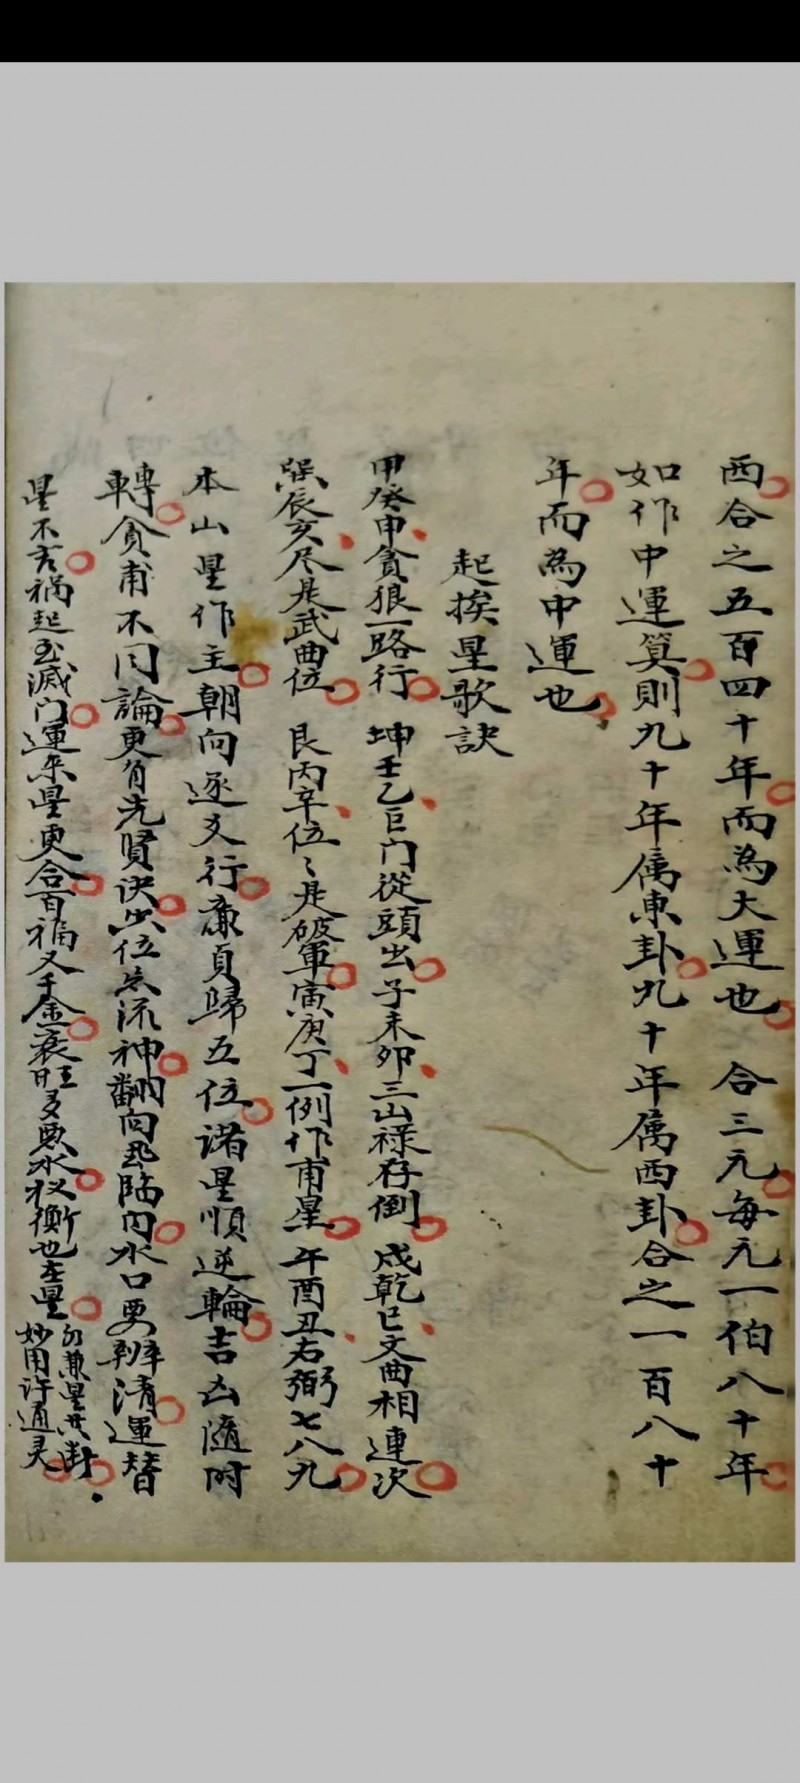 酉合之五百四十年而為大運也　合三元每元一伯八十年
如作中運算則九十年属東卦九十年属西卦合之一百八十
年而為中運也
起挨星歌訣
甲癸申貪狼一路行　坤壬乙巨门從頭出子未卯三山禄存倒　戍乾巳文曲相連次
巽辰亥尽是武曲位　艮丙辛位〻是破軍寅庚丁一例作甫星　午酉丑右弼七八九
本山星作主朝向逐爻行廉貞歸五位諸星順逆輪吉凶隨时
轉貪甫不同論更有先賢诀空位忌流神翻向飛臨丙水口要辨清運替
星不吉祸起至滅门運来星更合百福又千金衰旺多凴水权衡也在星
水兼星共卦
妙用许通灵